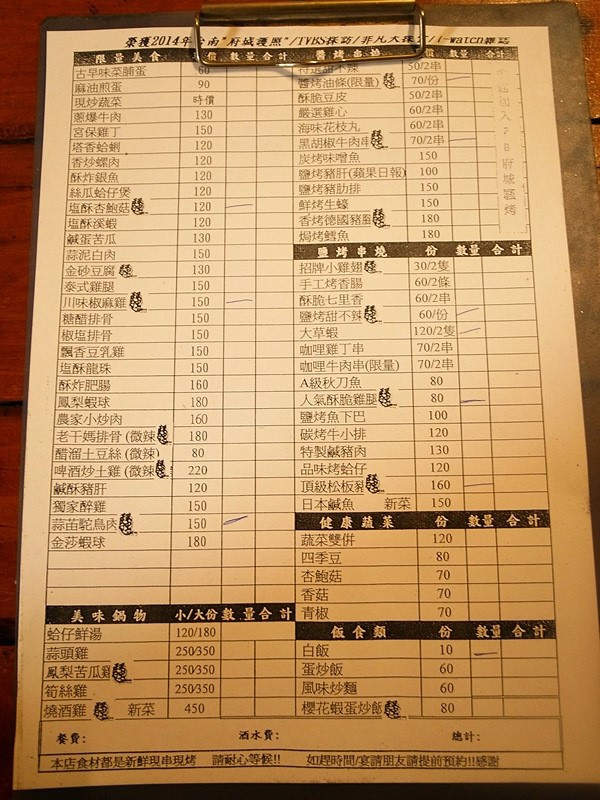 榮獲2014年台南"府城護照"/TVBS採訪/非凡大探索/i-watch雜誌
限量美食 價 數量 合計
古早味菜脯蛋 60
麻油煎蛋 90
現炒蔬菜 時價
蔥爆牛肉 130
宮保雞丁 150
塔香蛤蜊 120
香炒螺肉 120
酥炸銀魚 120
絲瓜蛤仔煲 120
塩酥杏鮑菇 120
塩酥溪蝦 120
鹹蛋苦瓜 130
蒜泥白肉 150
金砂豆腐 130
泰式雞腿 150
川味椒麻雞 150
糖醋排骨 150
椒塩排骨 150
飄香豆乳雞 150
塩酥龍珠 150
酥炸肥腸 160
鳳梨蝦球 180
農家小炒肉 160
老干媽排骨(微辣) 180
醋溜土豆絲(微辣) 80
啤酒炒土雞(微辣) 220
鹹酥豬肝 120
獨家醉雞 150
蒜苗鴕鳥肉 150
金莎蝦球 180
美味鍋物 小/大份 數量 合計
蛤仔鮮湯 120/180
蒜頭雞 250/350
鳳梨苦瓜雞 250/350
筍絲雞 250/350
燒酒雞 新菜 450
醬烤串燒 價 數量 合計
特選甜不辣 50/2串
醬烤油條(限量) 70/份
酥脆豆皮 50/2串
嚴選雞心 60/2串
海味花枝丸 60/2串
黑胡椒牛肉串 70/2串
炭烤味噌魚 150
鹽烤豬肝(蘋果日報) 100
鹽烤豬肋排 150
鮮烤生蠔 150
香烤德國豬腳 180
焗烤鱈魚 180
鹽烤串燒 份 數量 合計
招牌小雞翅 30/2隻
手工烤香腸 60/2條
酥脆七里香 60/2串
鹽烤甜不辣 60/份
大草蝦 120/2隻
咖哩雞丁串 70/2串
咖哩牛肉串(限量) 70/2串
A級秋刀魚 80
人氣酥脆雞腿 80
鹽烤魚下巴 100
碳烤牛小排 120
特製鹹豬肉 130
品味烤蛤仔 120
頂級松板豬 160
日本鹹魚 新菜 150
健康蔬菜 份 數量 合計
蔬菜雙併 120
四季豆 80
杏鮑菇 70
香菇 70
青椒 70
飯食類 份 數量 合計
白飯 10
蛋炒飯 60
風味炒麵 60
櫻花蝦蛋炒飯 80
餐費: 酒水費: 總計:
本店食材都是新鮮現串現烤 請耐心等候!! 如趕時間/宴請朋友請提前預約!!感謝